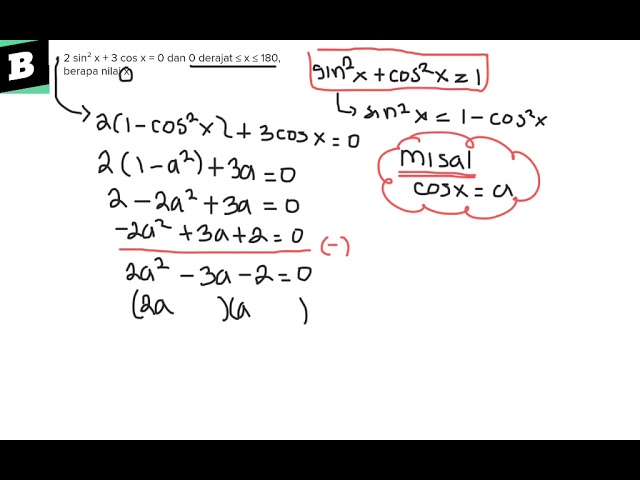 B
2 sin² x + 3 cos x = 0 dan 0 derajat ≤ x ≤ 180,
berapa nilai x
sin²x + cos²x = 1
sin²x = 1 - cos²x
2(1 - cos²x) + 3cosx = 0
2(1 - a²) + 3a = 0
2 - 2a² + 3a = 0
-2a² + 3a + 2 = 0 (-)
2a² - 3a - 2 = 0
(2a )(a )
misal
cosx = a